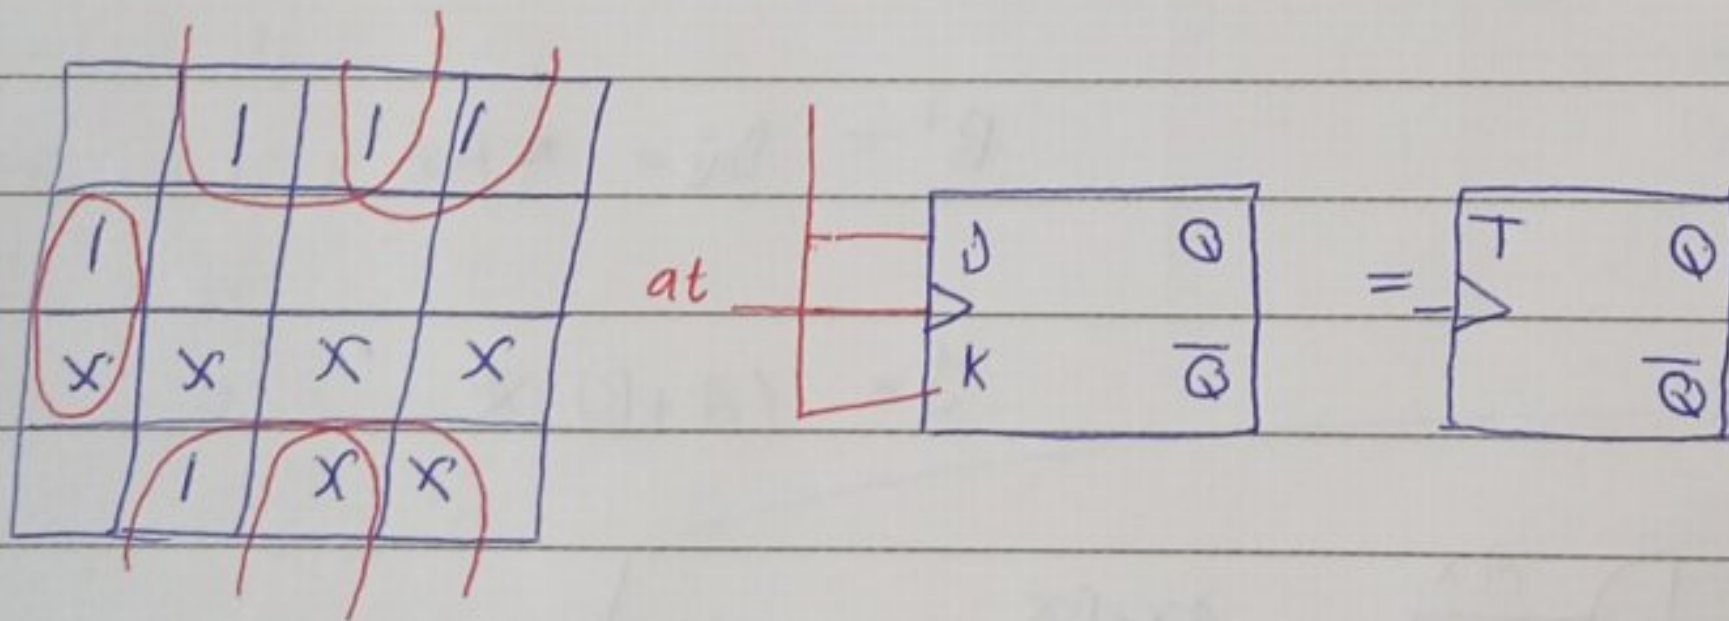 1 1 1
1
X X X X
1 X X
at
J Q
K Q̅
=
T Q
Q̅